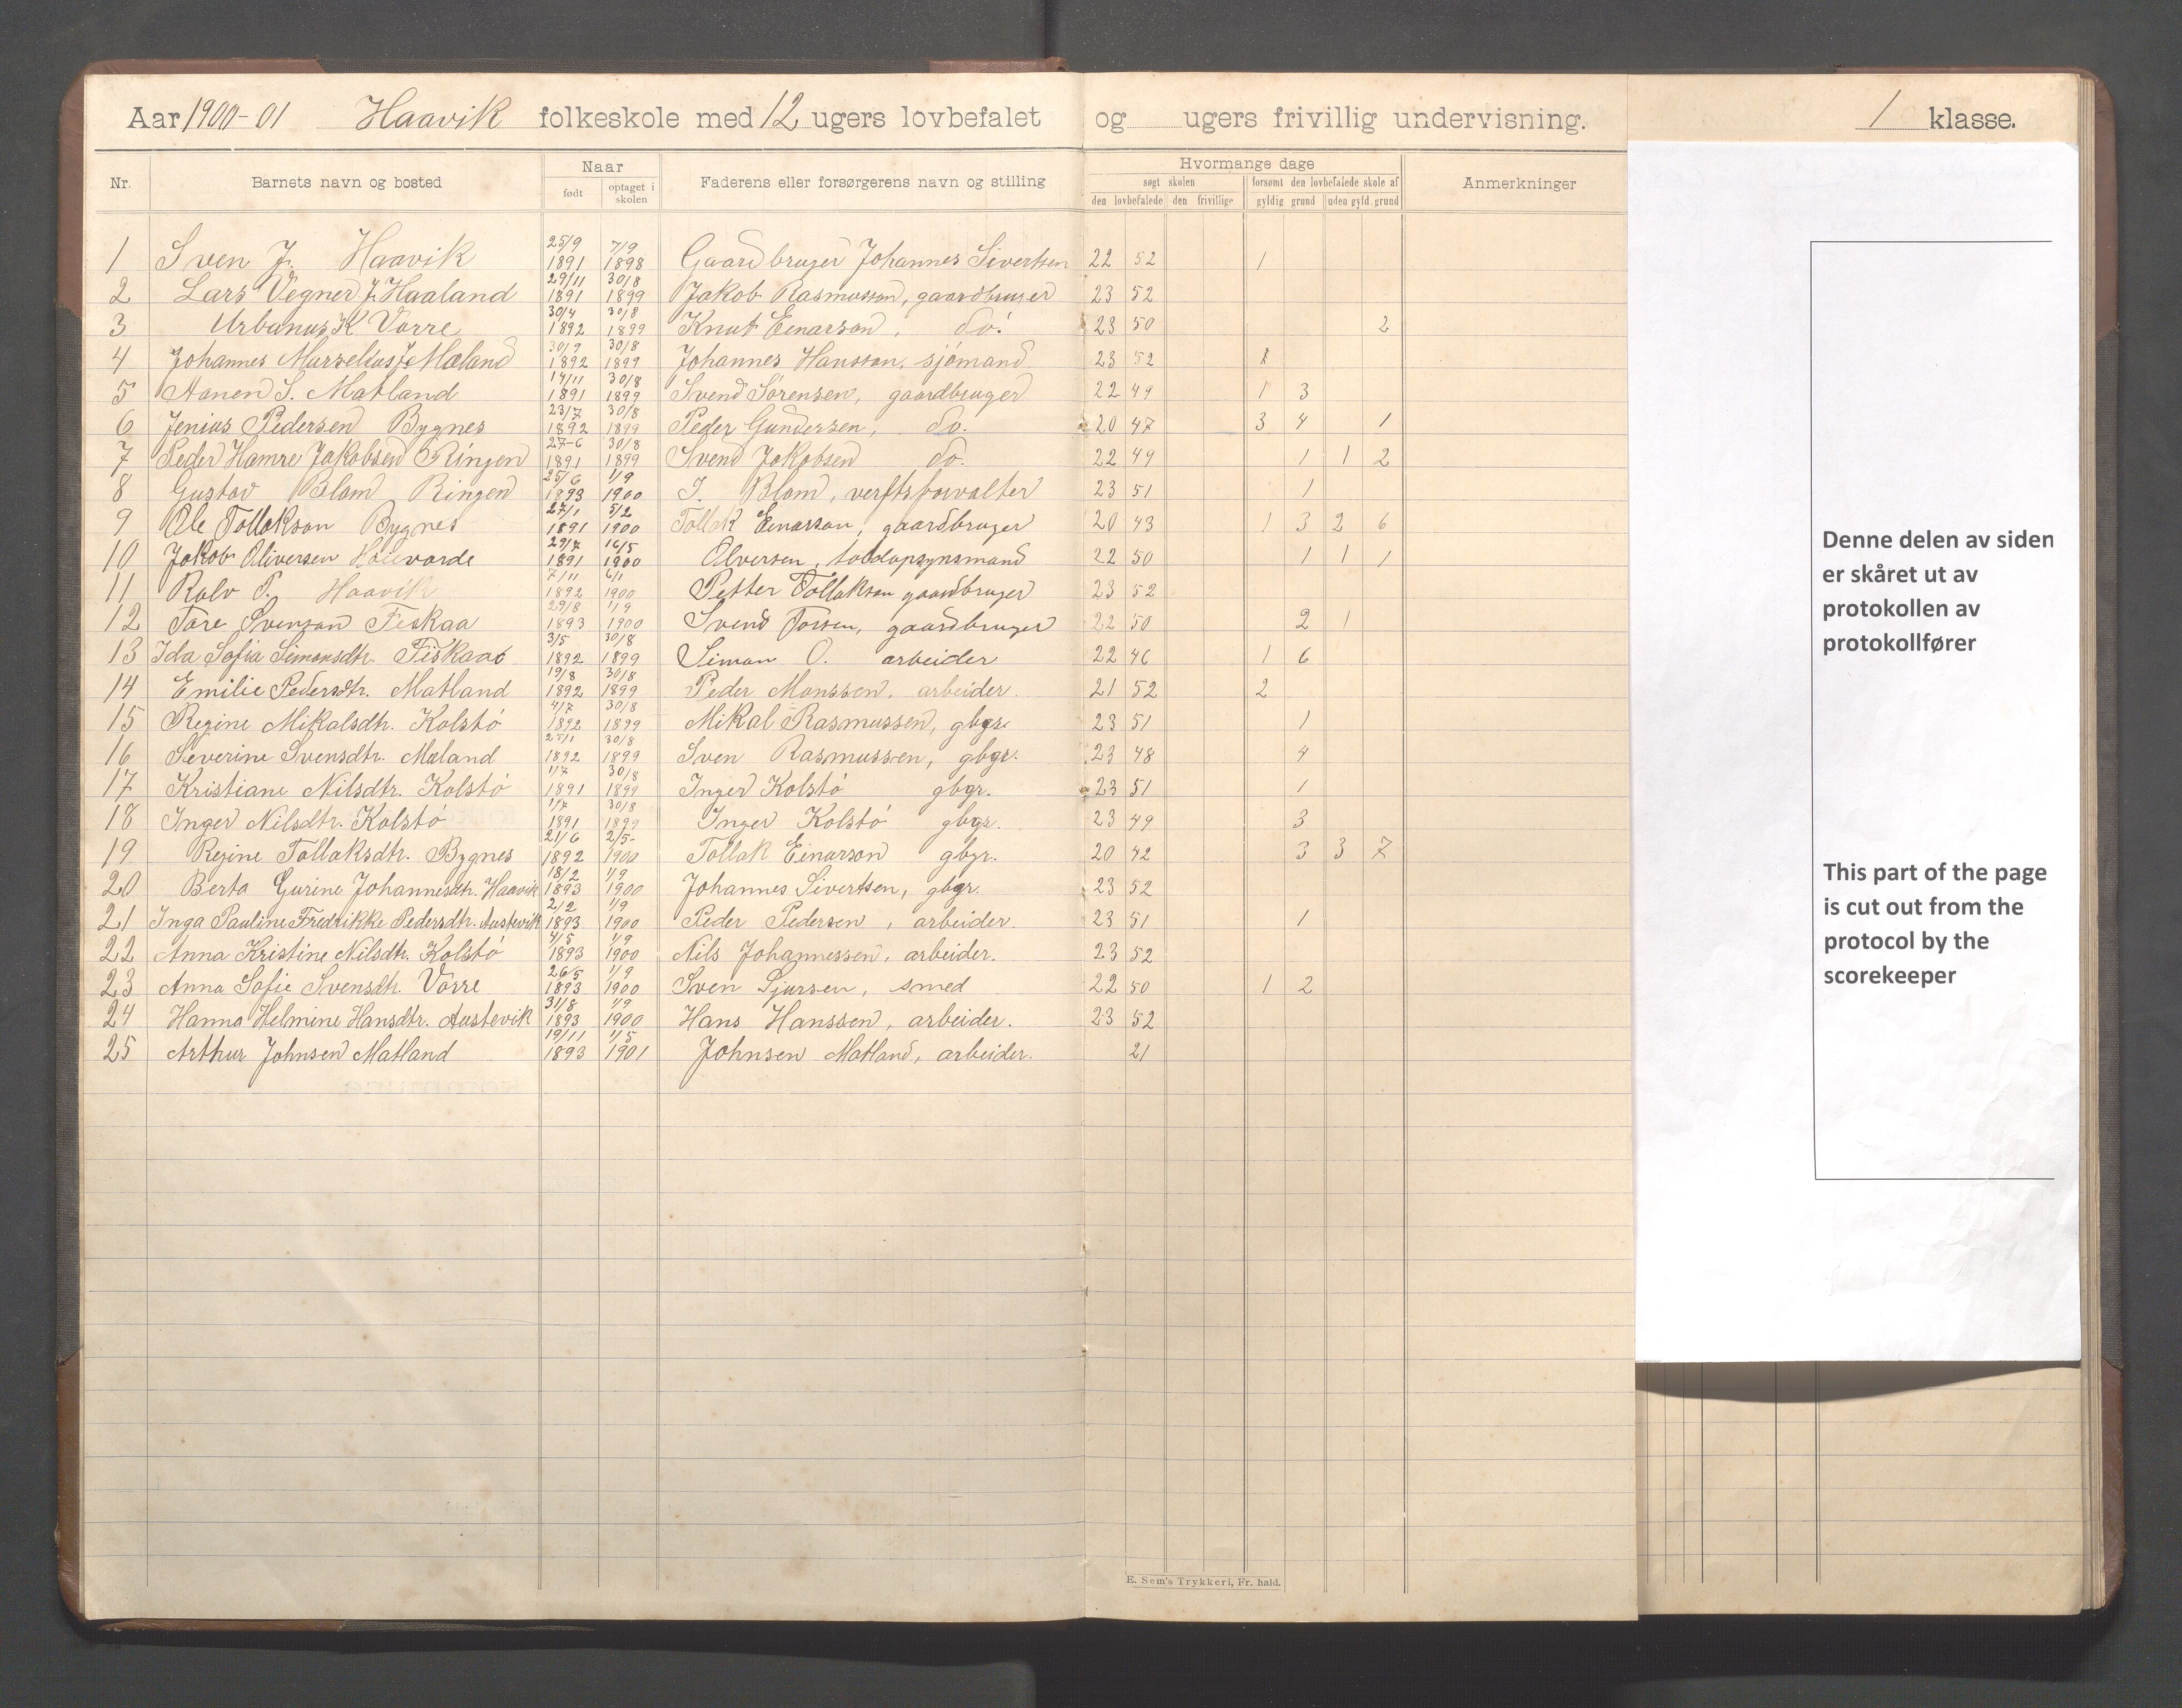 Aar 1900-01 Haavik folkeskole med 12 ugers lovbefalet og ugers frivillig undervisning. 1 klasse.
Nr. Barnets navn og bosted Naar Faderens eller forsørgerens navn og stilling Hvormange dage Anmerkninger
født optaget i skolen søgt skolen forsømt den lovbefalede skole af
den lovbefalede den frivillige gyldig grund uden gyld. grund
1 Sven J. Haavik 25/9 1891 7/9 1898 Gaardbruger Johannes Sivertsen 22 52 1
2 Lars Vegner J. Haaland 29/11 1891 30/8 1899 Jakob Rasmusson, gaardbruger 23 52
3 Urbanus K. Vorre 30/4 1892 30/8 1899 Knut Einarson, do. 23 50 2
4 Johannes Marselius J. Mæland 30/9 1892 30/8 1899 Johannes Hansson, sjömand 23 52 1
5 Aanen S. Matland 14/11 1891 30/8 1899 Svend Sörensen, gaardbruger 22 49 1 3
6 Jenius Pedersen Bygnes 23/7 1892 30/8 1899 Peder Gundersen, do. 20 47 3 4 1
7 Peder Hamre Jakobsen Ringen 27-6 1891 30/8 1899 Svend Jakobsen do. 22 49 1 1 2
8 Gustav Blom Ringen 25/6 1893 1/9 1900 J. Blom, verftsforvalter 23 51 1
9 Ole Tollakson Bygnes 27/1 1891 5/2 1900 Tollak Einarson, gaardbruger 20 43 1 3 2 6
10 Jakob Oliversen 29/7 1891 16/5 1900 Olversen, toldopsynsmand 22 50 1 1 1
11 Rolv P. Haavik 7/11 1892 6/1 1900 Petter Tollakson gaardbruger 23 52
12 Tore Svenson Fiskaa 29/8 1893 1/9 1900 Svend Torsen, gaardbruger 22 50 2 1
13 Ida Sofia Simonsdtr. Fiskaa 3/5 1892 30/8 1899 Simon O. arbeider 22 46 1 6
14 Emilie Pedersdtr. Matland 19/8 1892 30/8 1899 Peder Monssen, arbeider. 21 52 2
15 Regine Mikalsdtr. Kolstö 4/7 1892 30/8 1899 Mikal Rasmussen, gbgr. 23 51 1
16 Severine Svensdtr. Mæland 1892 30/8 1899 Sven Rasmussen, gbgr. 23 48 4
17 Kristiane Nilsdtr. Kolstö 1/7 1891 30/8 1899 Inger Kolstö gbgr. 23 51 1
18 Inger Nilsdtr. Kolstö 1/7 1891 30/8 1899 Inger Kolstö gbgr. 23 49 3
19 Regine Tollaksdtr. Bygnes 21/6 1892 2/5 1900 Tollak Einarson gbgr. 20 42 3 3 7
20 Berta Gurine Johannesdtr. Haavik 18/2 1893 1/9 1900 Johannes Sivertsen, gbgr. 23 52
21 Inga Pauline Fredrikke Pedersdtr. Austevik 2/2 1893 1/9 1900 Peder Pedersen, arbeider. 23 51 1
22 Anna Kristine Nilsdtr. Kolstö 4/5 1893 1/9 1900 Nils Johannessen, arbeider. 23 52
23 Anna Sofie Svensdtr. Vorre 26/5 1893 1/9 1900 Sven Sjursen, smed 22 50 1 2
24 Hanna Helmine Hansdtr. Austevik 31/8 1893 1/9 1900 Hans Hanssen, arbeider. 23 52
25 Arthur Johnsen Matland 19/11 1893 1/5 1901 Johnsen Matland, arbeider. 21
E. Sem's Trykkeri, Fr. hald.
Denne delen av siden
er skåret ut av
protokollen av
protokollfører
This part of the page
is cut out from the
protocol by the
scorekeeper